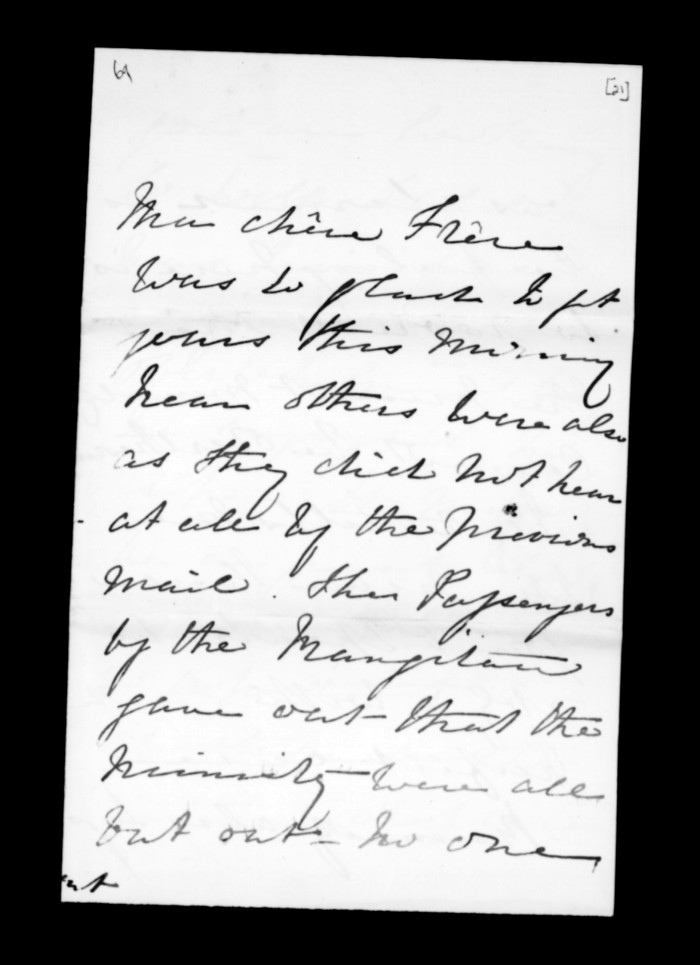 69
[21]
Mon chère Frère
Was so glad to get
yours this morning
hear others were also
as they did not hear
at all by the previous
mail. The Passengers
by the Rangitata
gave out that the
Ministry were all
but out - no one